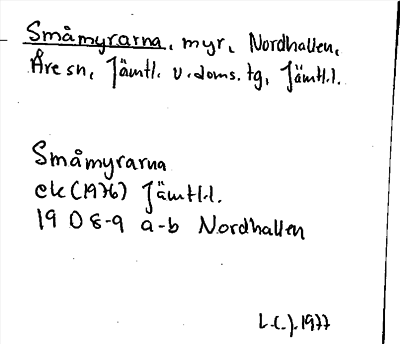 Småmyrarna, myr, Nordhallen,
Åre sn, Jämtl. v. doms. tg, Jämtl.l.
Småmyrarna
ek (1976) Jämtl.l.
19 D 8-9 a-b Nordhallen
1977